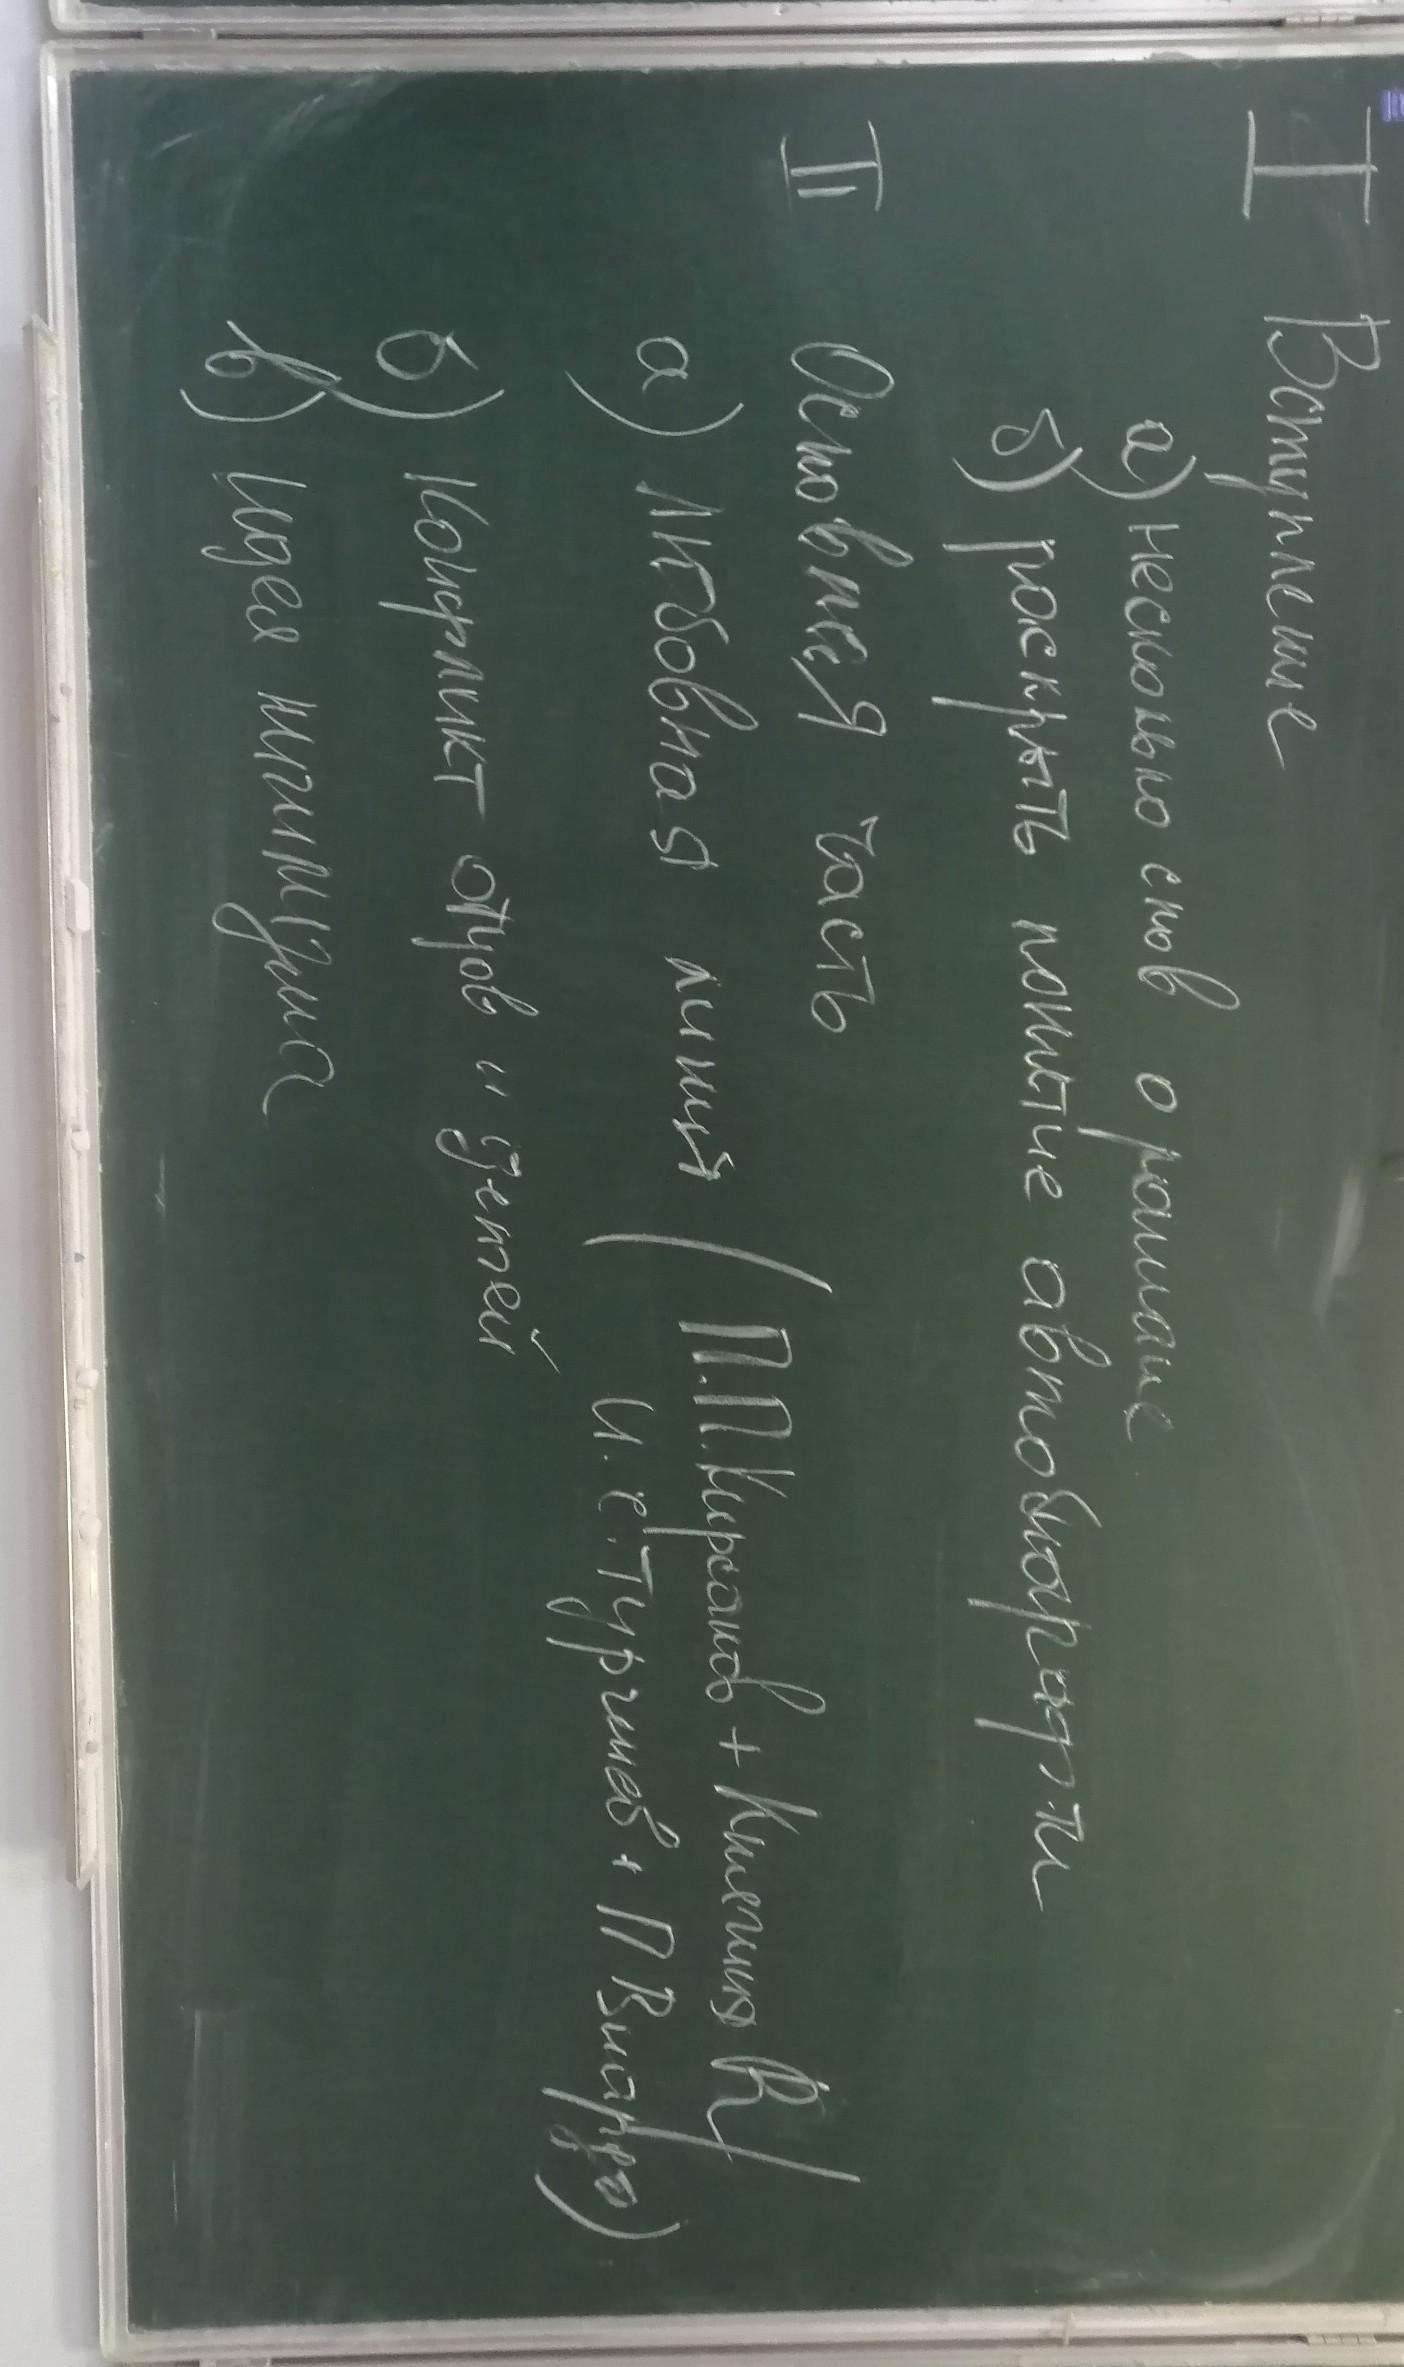 I Вступление
а) несколько слов о романе
б) раскрыть понятие автобиограф-ти
II Основная часть
а) Любовная линия (П.П.Кирсанов + Княгиня R/
И.С.Тургенев + П Виардо)
б) Конфликт отцов и детей
в) Идея нигилизма